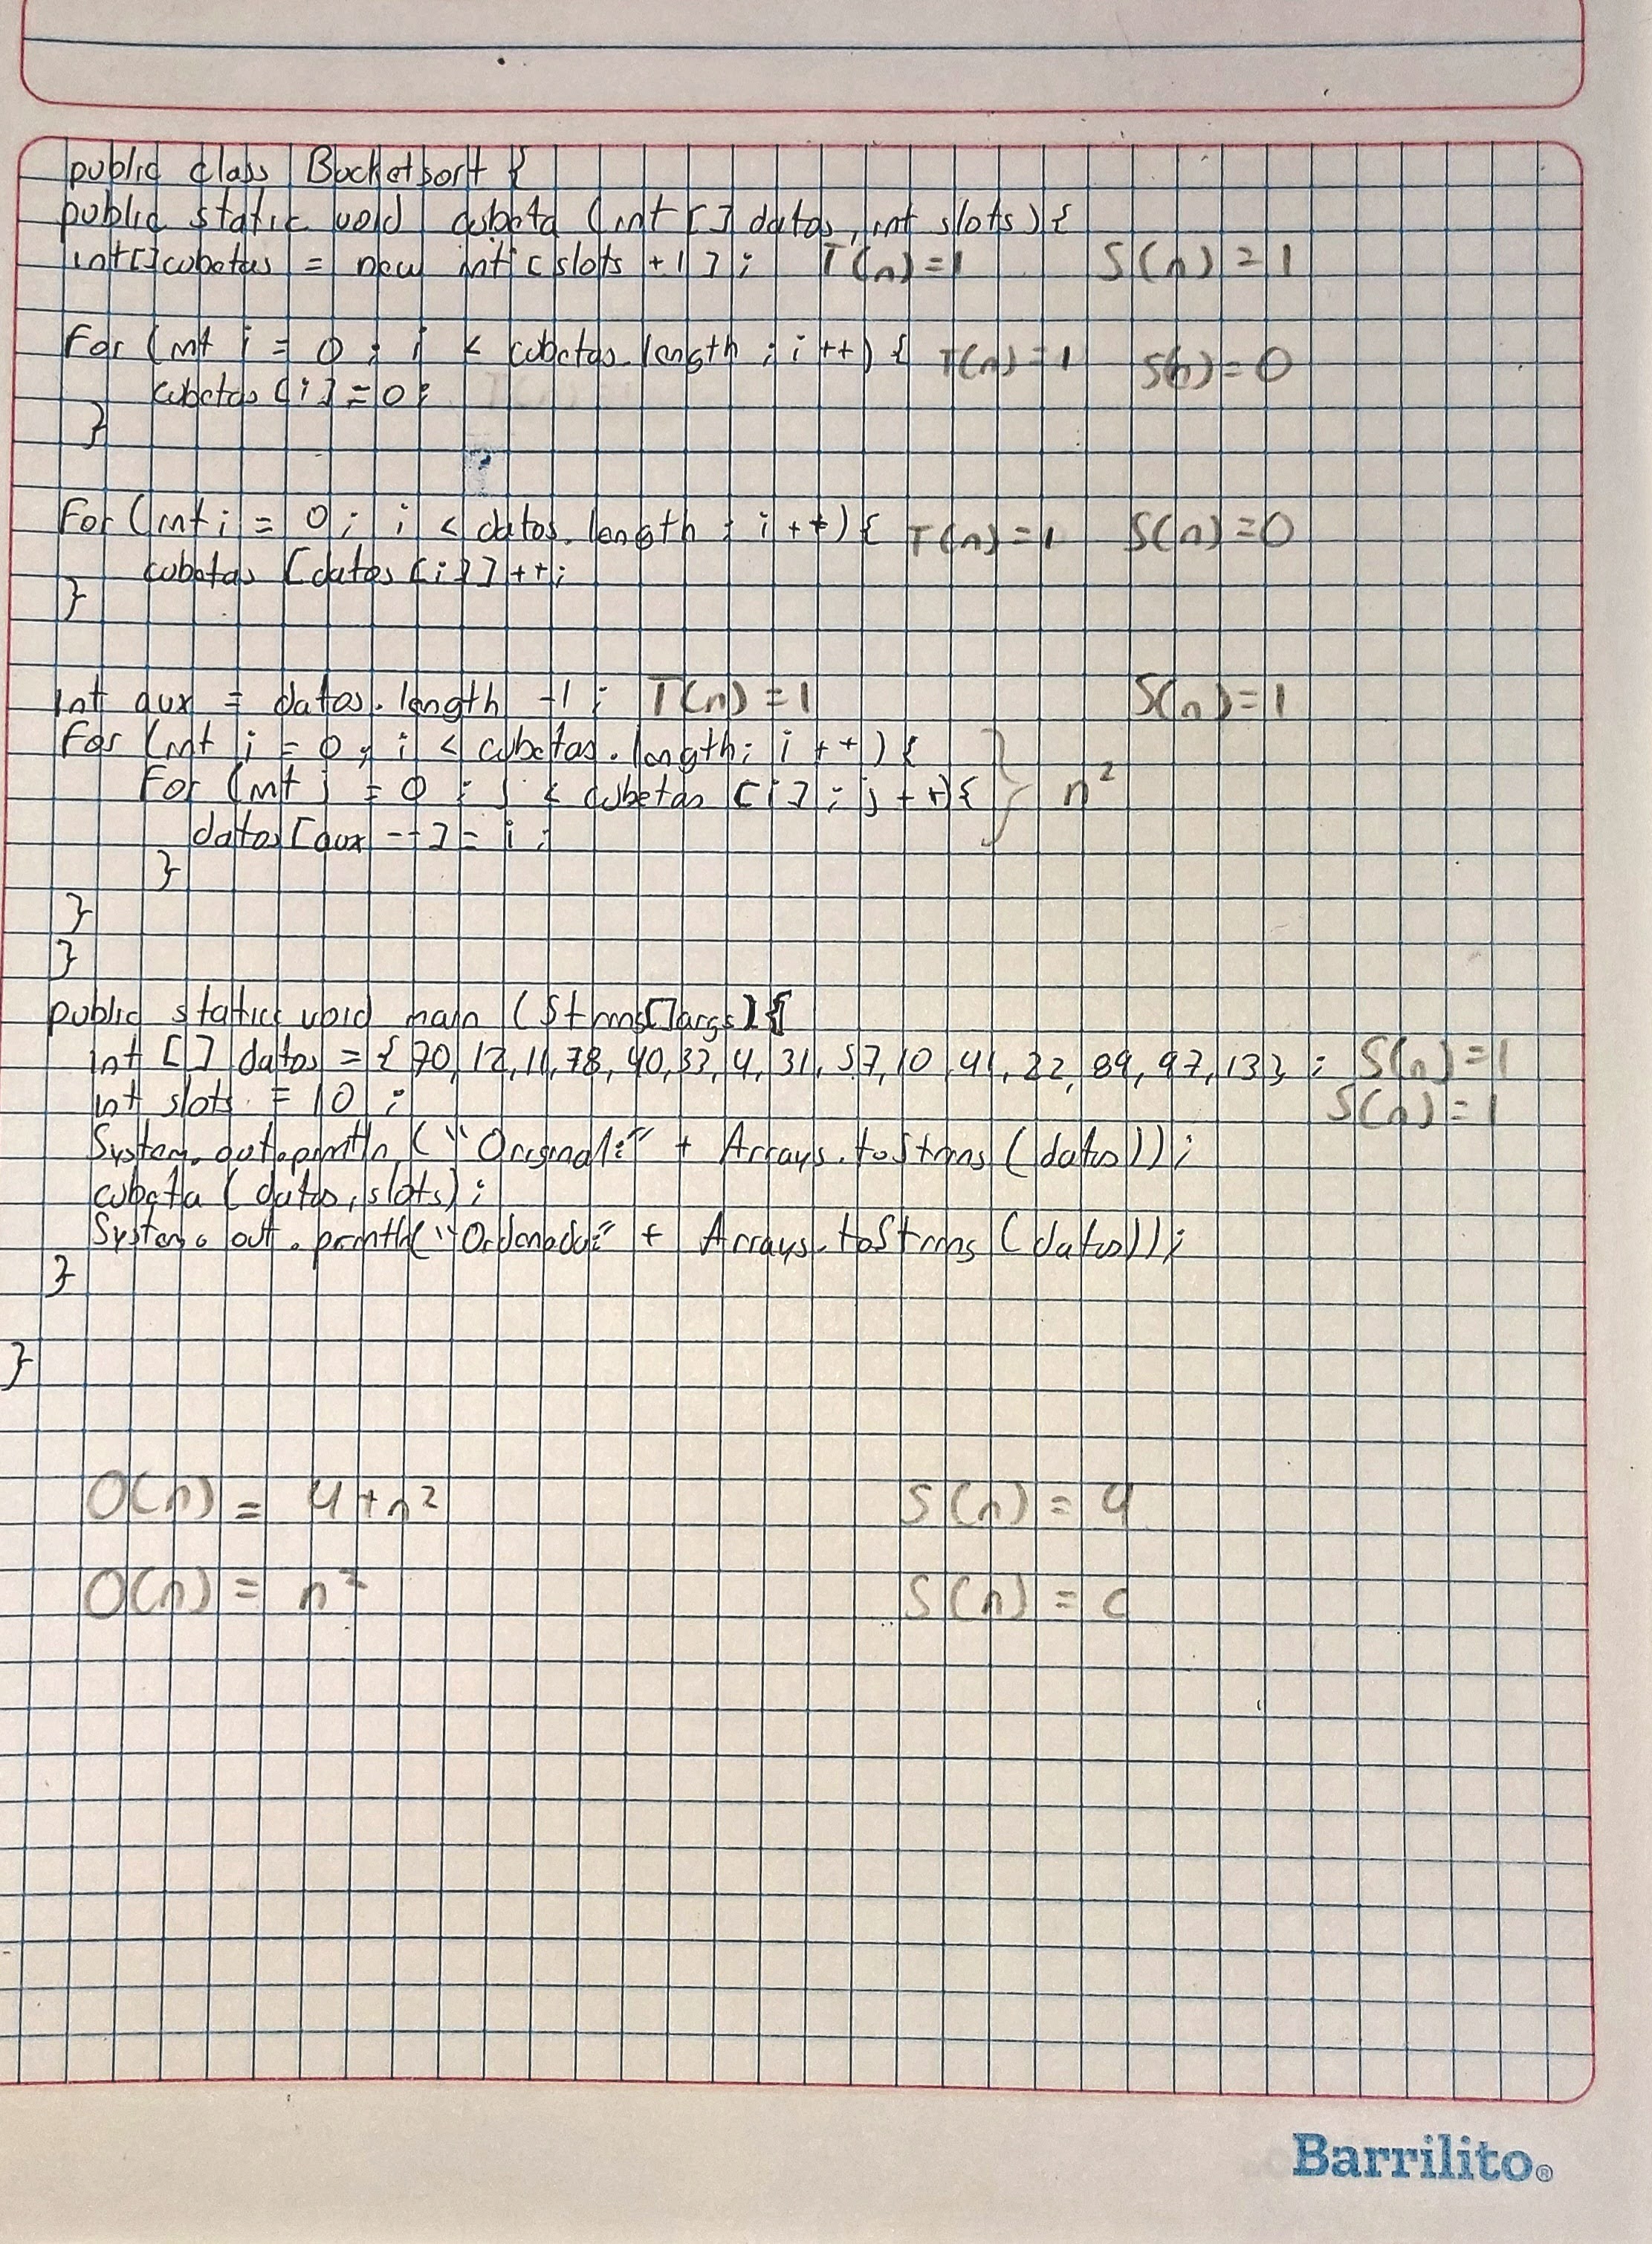 public class Bucketsort {
public static void cubeta (int [] datos, int slots) {
int[] cubetas = new int [slots +1]; T(n)=1 S(n)=1
For (int i = 0; i < cubetas.length; i++) { T(n)=1 S(n)=0
cubetas [i] = 0;
}
For (int i = 0; i < datos.length; i++) { T(n)=1 S(n)=0
cubetas [datos [i]]++;
}
int aux = datos.length -1; T(n)=1 S(n)=1
For (int i = 0; i < cubetas.length; i++) {
For (int j = 0; j < cubetas [i]; j++) { n²
datos [aux --] = i;
}
}
}
public static void main (String[] args) {
int [] datos = {70, 12, 11, 78, 40, 33, 4, 31, 57, 10, 41, 22, 89, 97, 13}; S(n)=1
int slots = 10; S(n)=1
System.out.println ("Original:" + Arrays.toString (datos));
cubeta (datos, slots);
System.out.println ("Ordenado:" + Arrays.toString (datos));
}
}
O(n) = 4+n² S(n) = 4
O(n) = n² S(n) = c
Barrilito®